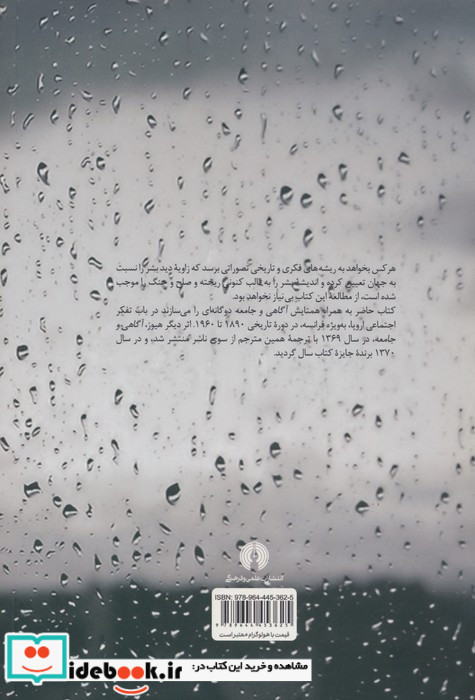 هر کس بخواهد به ریشه‌های فکری و تاریخی تصوراتی برسد که زاویهٔ دید بشر را نسبت
به جهان تعیین کرده و اندیشهٔ بشر را به قالب کنونی ریخته و صلح و جنگ را موجب
شده است، از مطالعهٔ این کتاب بی‌نیاز نخواهد بود.
کتاب حاضر به همراه همتایش آگاهی و جامعه دوگانه‌ای را می‌سازند در باب تفکر
اجتماعی اروپا، به‌ویژه فرانسه، در دورهٔ تاریخی ۱۸۹۰ تا ۱۹۶۰. اثر دیگر هیوز، آگاهی و
جامعه، در سال ۱۳۶۹ با ترجمهٔ همین مترجم از سوی ناشر منتشر شد، و در سال
۱۳۷۰ برندهٔ جایزهٔ کتاب سال گردید.
انتشارات علمی و فرهنگی
ISBN: 978-964-445-362-5
9 789644 453625
قیمت با هولوگرام معتبر است
مشاهده و خرید این کتاب در:
idebook.ir